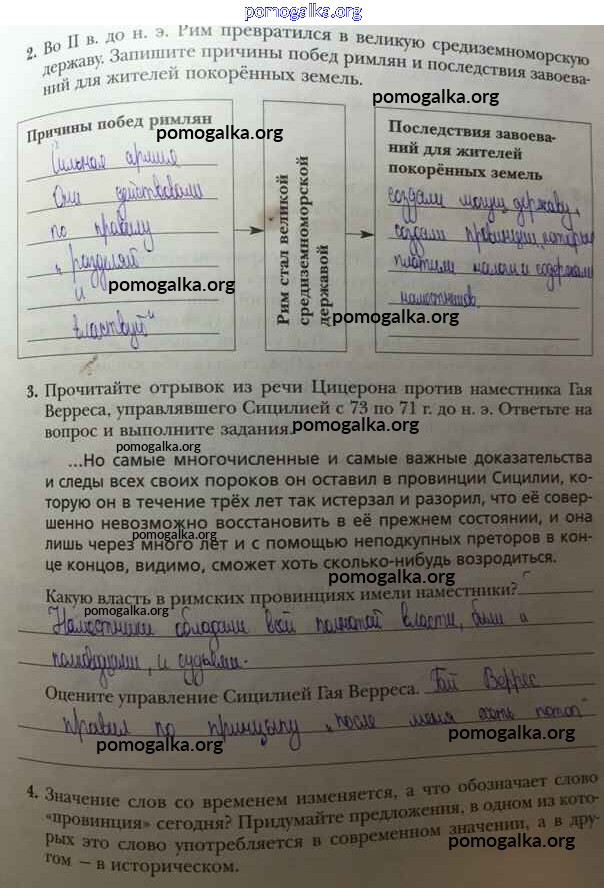 pomogalka.org
2. Во II в. до н. э. Рим превратился в великую средиземноморскую
державу. Запишите причины побед римлян и последствия завоева-
ний для жителей покорённых земель.
pomogalka.org
Причины побед римлян
pomogalka.org
Сильная армия
Они действовали
по правилу
„разделяй
и
pomogalka.org
властвуй"
Рим стал великой
средиземноморской
державой
Последствия завоева-
ний для жителей
покорённых земель
создали могущ державу,
создали провинции, которые
платили налоги и содержали
наместников.
pomogalka.org
3. Прочитайте отрывок из речи Цицерона против наместника Гая
Верреса, управлявшего Сицилией с 73 по 71 г. до н. э. Ответьте на
вопрос и выполните задания.
pomogalka.org
pomogalka.org
...Но самые многочисленные и самые важные доказательства
и следы всех своих пороков он оставил в провинции Сицилии, ко-
торую он в течение трёх лет так истерзал и разорил, что её совер-
шенно невозможно восстановить в её прежнем состоянии, и она
pomogalka.org
лишь через много лет и с помощью неподкупных преторов в кон-
це концов, видимо, сможет хоть сколько-нибудь возродиться.
pomogalka.org
Какую власть в римских провинциях имели наместники?
pomogalka.org
Наместники обладали всей полнотой власти, были и
полководцами, и судьями.
Оцените управление Сицилией Гая Верреса. Гай Веррес
правил по принципу „после меня хоть потоп"
pomogalka.org
pomogalka.org
4. Значение слов со временем изменяется, а что обозначает слово
«провинция» сегодня? Придумайте предложения, в одном из кото-
рых это слово употребляется в современном значении, а в дру-
гом – в историческом.
pomogalka.org